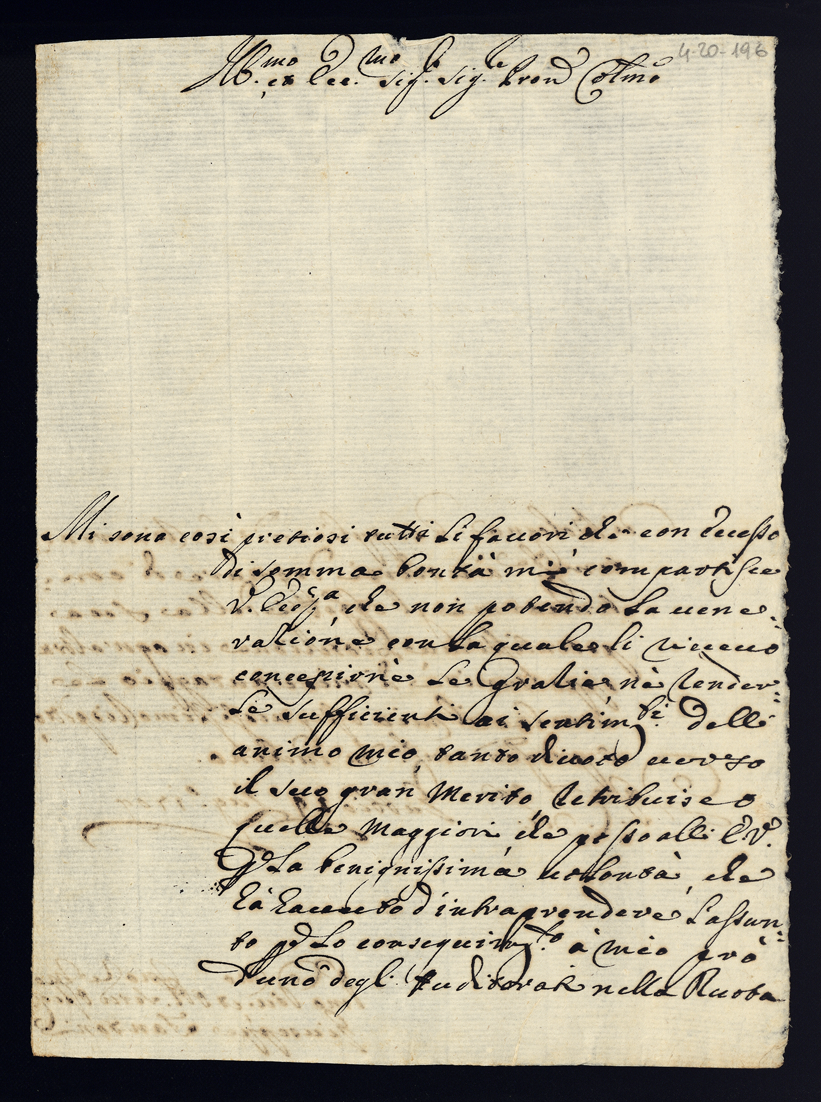 4-20-196
Ill.mo et Ecc.mo Sig.r Sig.re Pron Col.mo
Mi sono così pretiosi tutti li fauori che con eccesso
di somma bontà mi compartisce
V. Ecc.za che non potendo la uene:
ratione con la quale li riceuo
concepirne le gratie nè render:
le sufficienti ai sentim.ti dell
animo mio tanto diuoto uerso
il suo gran Merito, retribuisco
quelle Maggiori che posso all E. V.
p la benignissima uolontà, che
hà hauuto d'intraprendere l'assun:
to p lo conseguim.to à mio prò
d'uno degli Auditorati nella Ruota